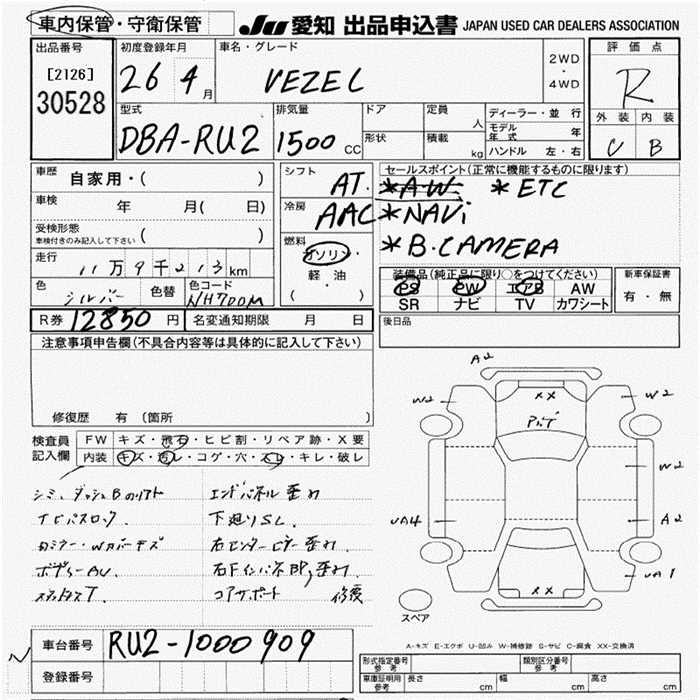 車内保管・守衛保管
JU 愛知 出品申込書 JAPAN USED CAR DEALERS ASSOCIATION
出品番号
[2126]
30528
初度登録年月
26 4月
車名・グレード
VEZEL
2WD
・
4WD
評価点
R
外装 内装
C B
型式
DBA-RU2
排気量
1500 CC
ドア
形状
定員 人
積載 kg
ディーラー・並行
モデル年式 年
ハンドル 左・右
車歴 自家用・( )
車検 年 月( 日)
受検形態
車検付きのみ記入して下さい ( )
走行 11万9千213km
色 シルバー 色替 色コード NH700M
シフト AT.
冷房 AAC
燃料 ガソリン・
軽油
( )
セールスポイント(正常に機能するものに限ります)
*AW *ETC
*NAVi
*B.CAMERA
装備品(純正品に限り○をつけてください)
PS PW エアB AW
SR ナビ TV カワシート
新車保証書
有・無
R券 12850 円 名変通知期限 月 日
後日品
注意事項申告欄(不具合内容等は具体的に記入して下さい)
修復歴 有 (箇所 )
検査員記入欄
FW キズ・飛石・ヒビ割・リペア跡・X要
内装 キズ・汚レ・コゲ・穴・スレ・キレ・破レ
シミ、ダッシュBのリフト
カミラー・Wカバーキズ
ボディーAU.
スタッドレスT.
エンドパネル歪み
下廻りSL.
右センターピラー歪み.
コアサポート 修復
A2
W2
XX
W2
W2
UA4
A2
XX
UA1
スペア
A-キズ E-エクボ U-凹み W-補修跡 S-サビ C-腐食 XX-交換済
車台番号 RU2-1000909
登録番号
形式指定番号 参考 類別区分番号 参考
車庫証明用 参考 長さ cm 幅 cm 高さ cm